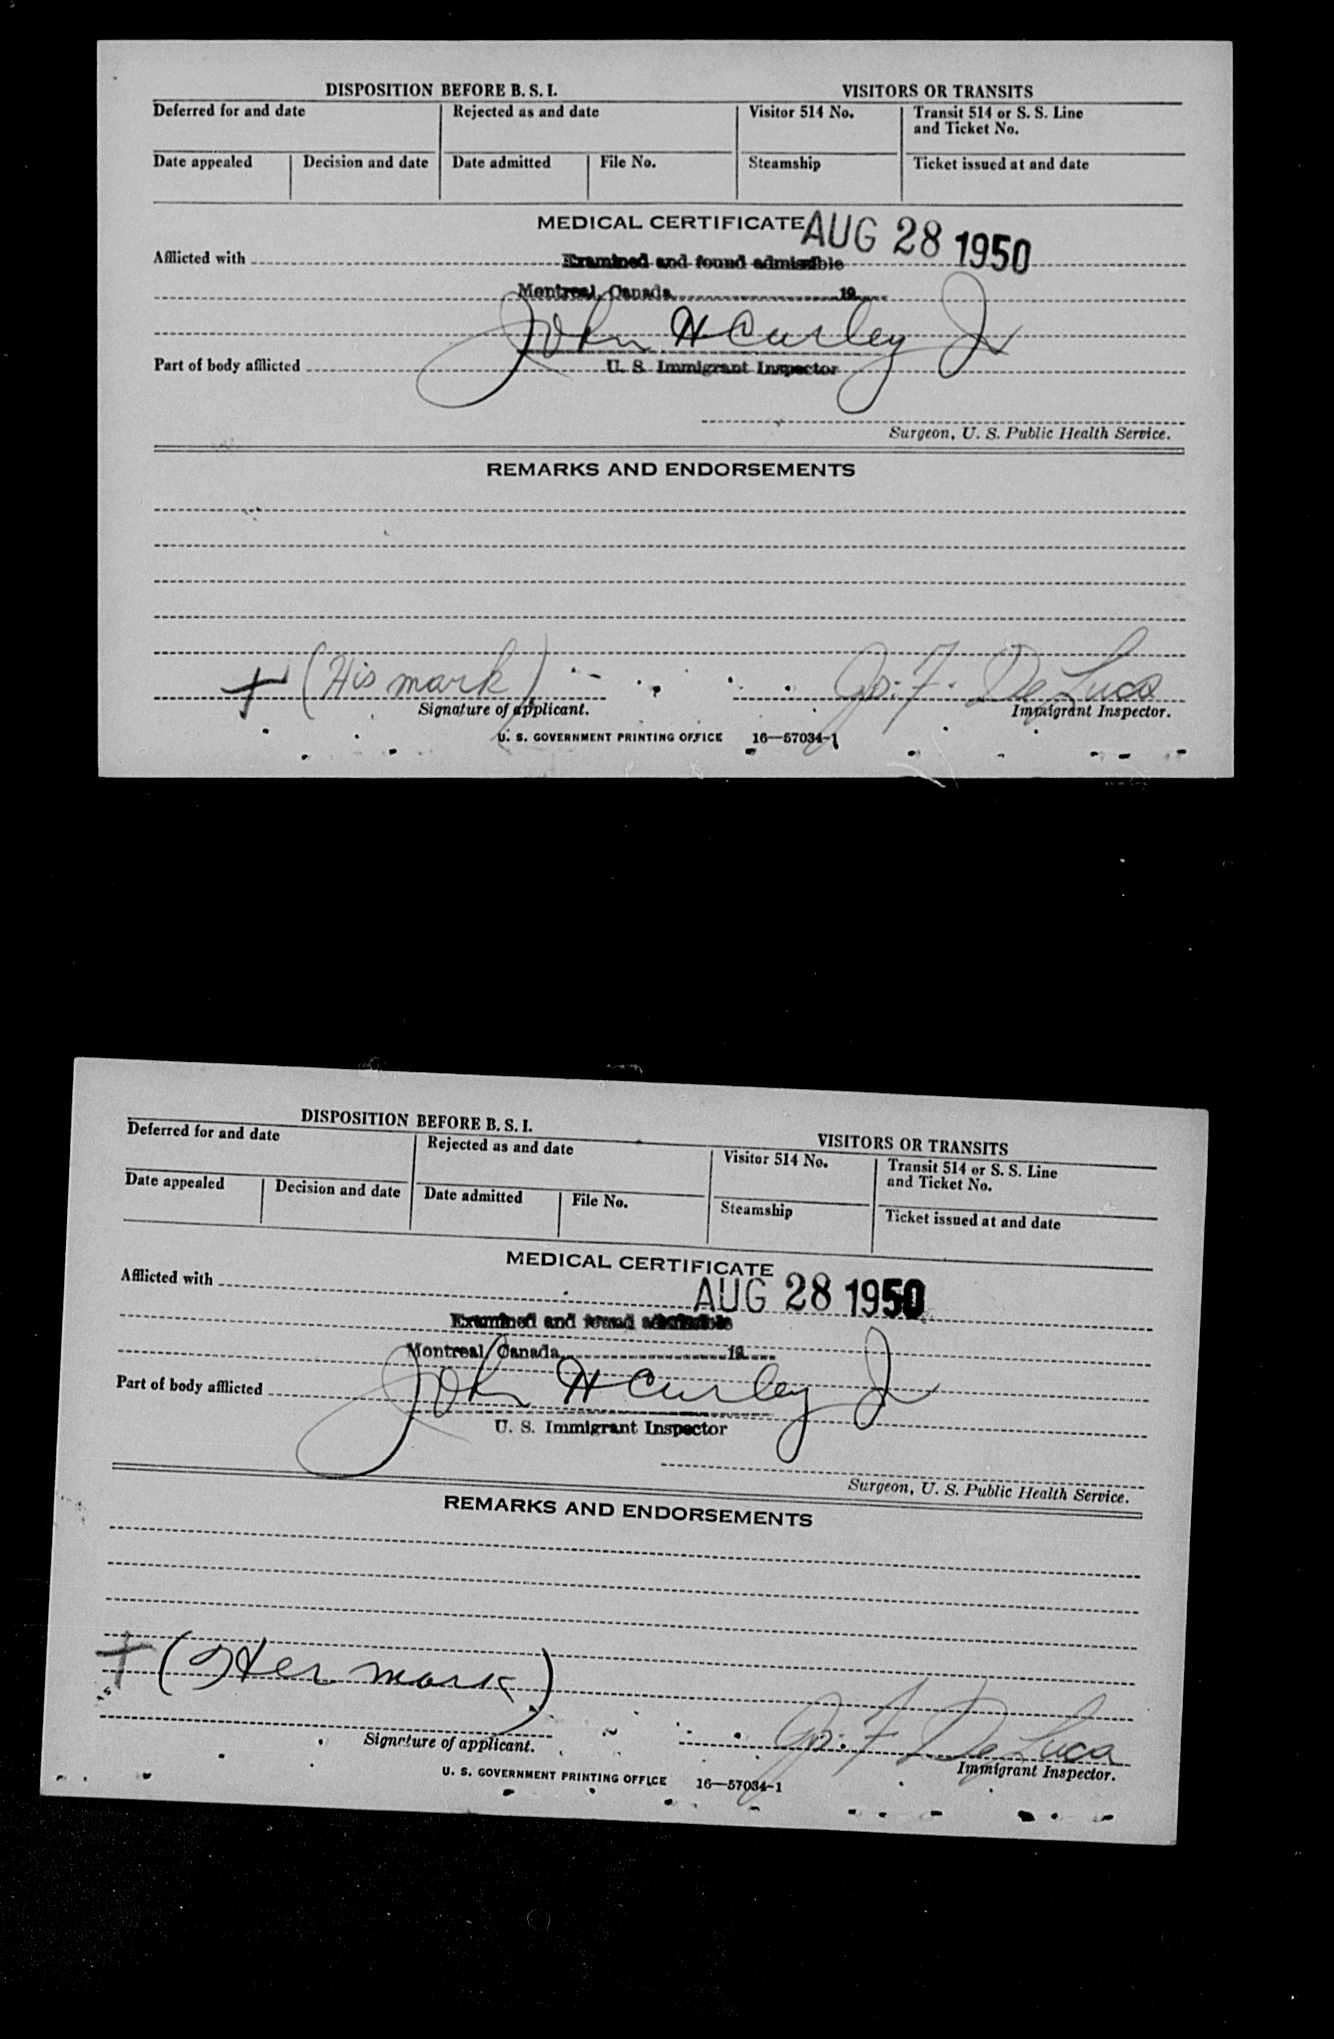 DISPOSITION BEFORE B. S. I. VISITORS OR TRANSITS
Deferred for and date Rejected as and date Visitor 514 No. Transit 514 or S. S. Line
and Ticket No.
Date appealed Decision and date Date admitted File No. Steamship Ticket issued at and date
MEDICAL CERTIFICATE AUG 28 1950
Afflicted with Examined and found admissible
Montreal, Canada 19
John H Curley Jr
Part of body afflicted U. S. Immigrant Inspector
Surgeon, U. S. Public Health Service.
REMARKS AND ENDORSEMENTS
+ (His mark) Jos. F. De Luca
Signature of applicant. Immigrant Inspector.
U. S. GOVERNMENT PRINTING OFFICE 16—57034-1
DISPOSITION BEFORE B. S. I. VISITORS OR TRANSITS
Deferred for and date Rejected as and date Visitor 514 No. Transit 514 or S. S. Line
and Ticket No.
Date appealed Decision and date Date admitted File No. Steamship Ticket issued at and date
MEDICAL CERTIFICATE
Afflicted with AUG 28 1950
Examined and found admissible
Montreal, Canada 19
John H Curley Jr
Part of body afflicted
U. S. Immigrant Inspector
Surgeon, U. S. Public Health Service.
REMARKS AND ENDORSEMENTS
+ (Her mark)
Jos. F. De Luca
Signature of applicant. Immigrant Inspector.
U. S. GOVERNMENT PRINTING OFFICE 16—57034-1